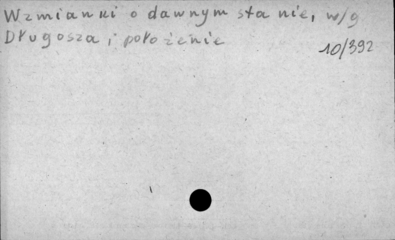 Wzmianki o dawnym stanie, w/g
Długosza, i położenie
10/392